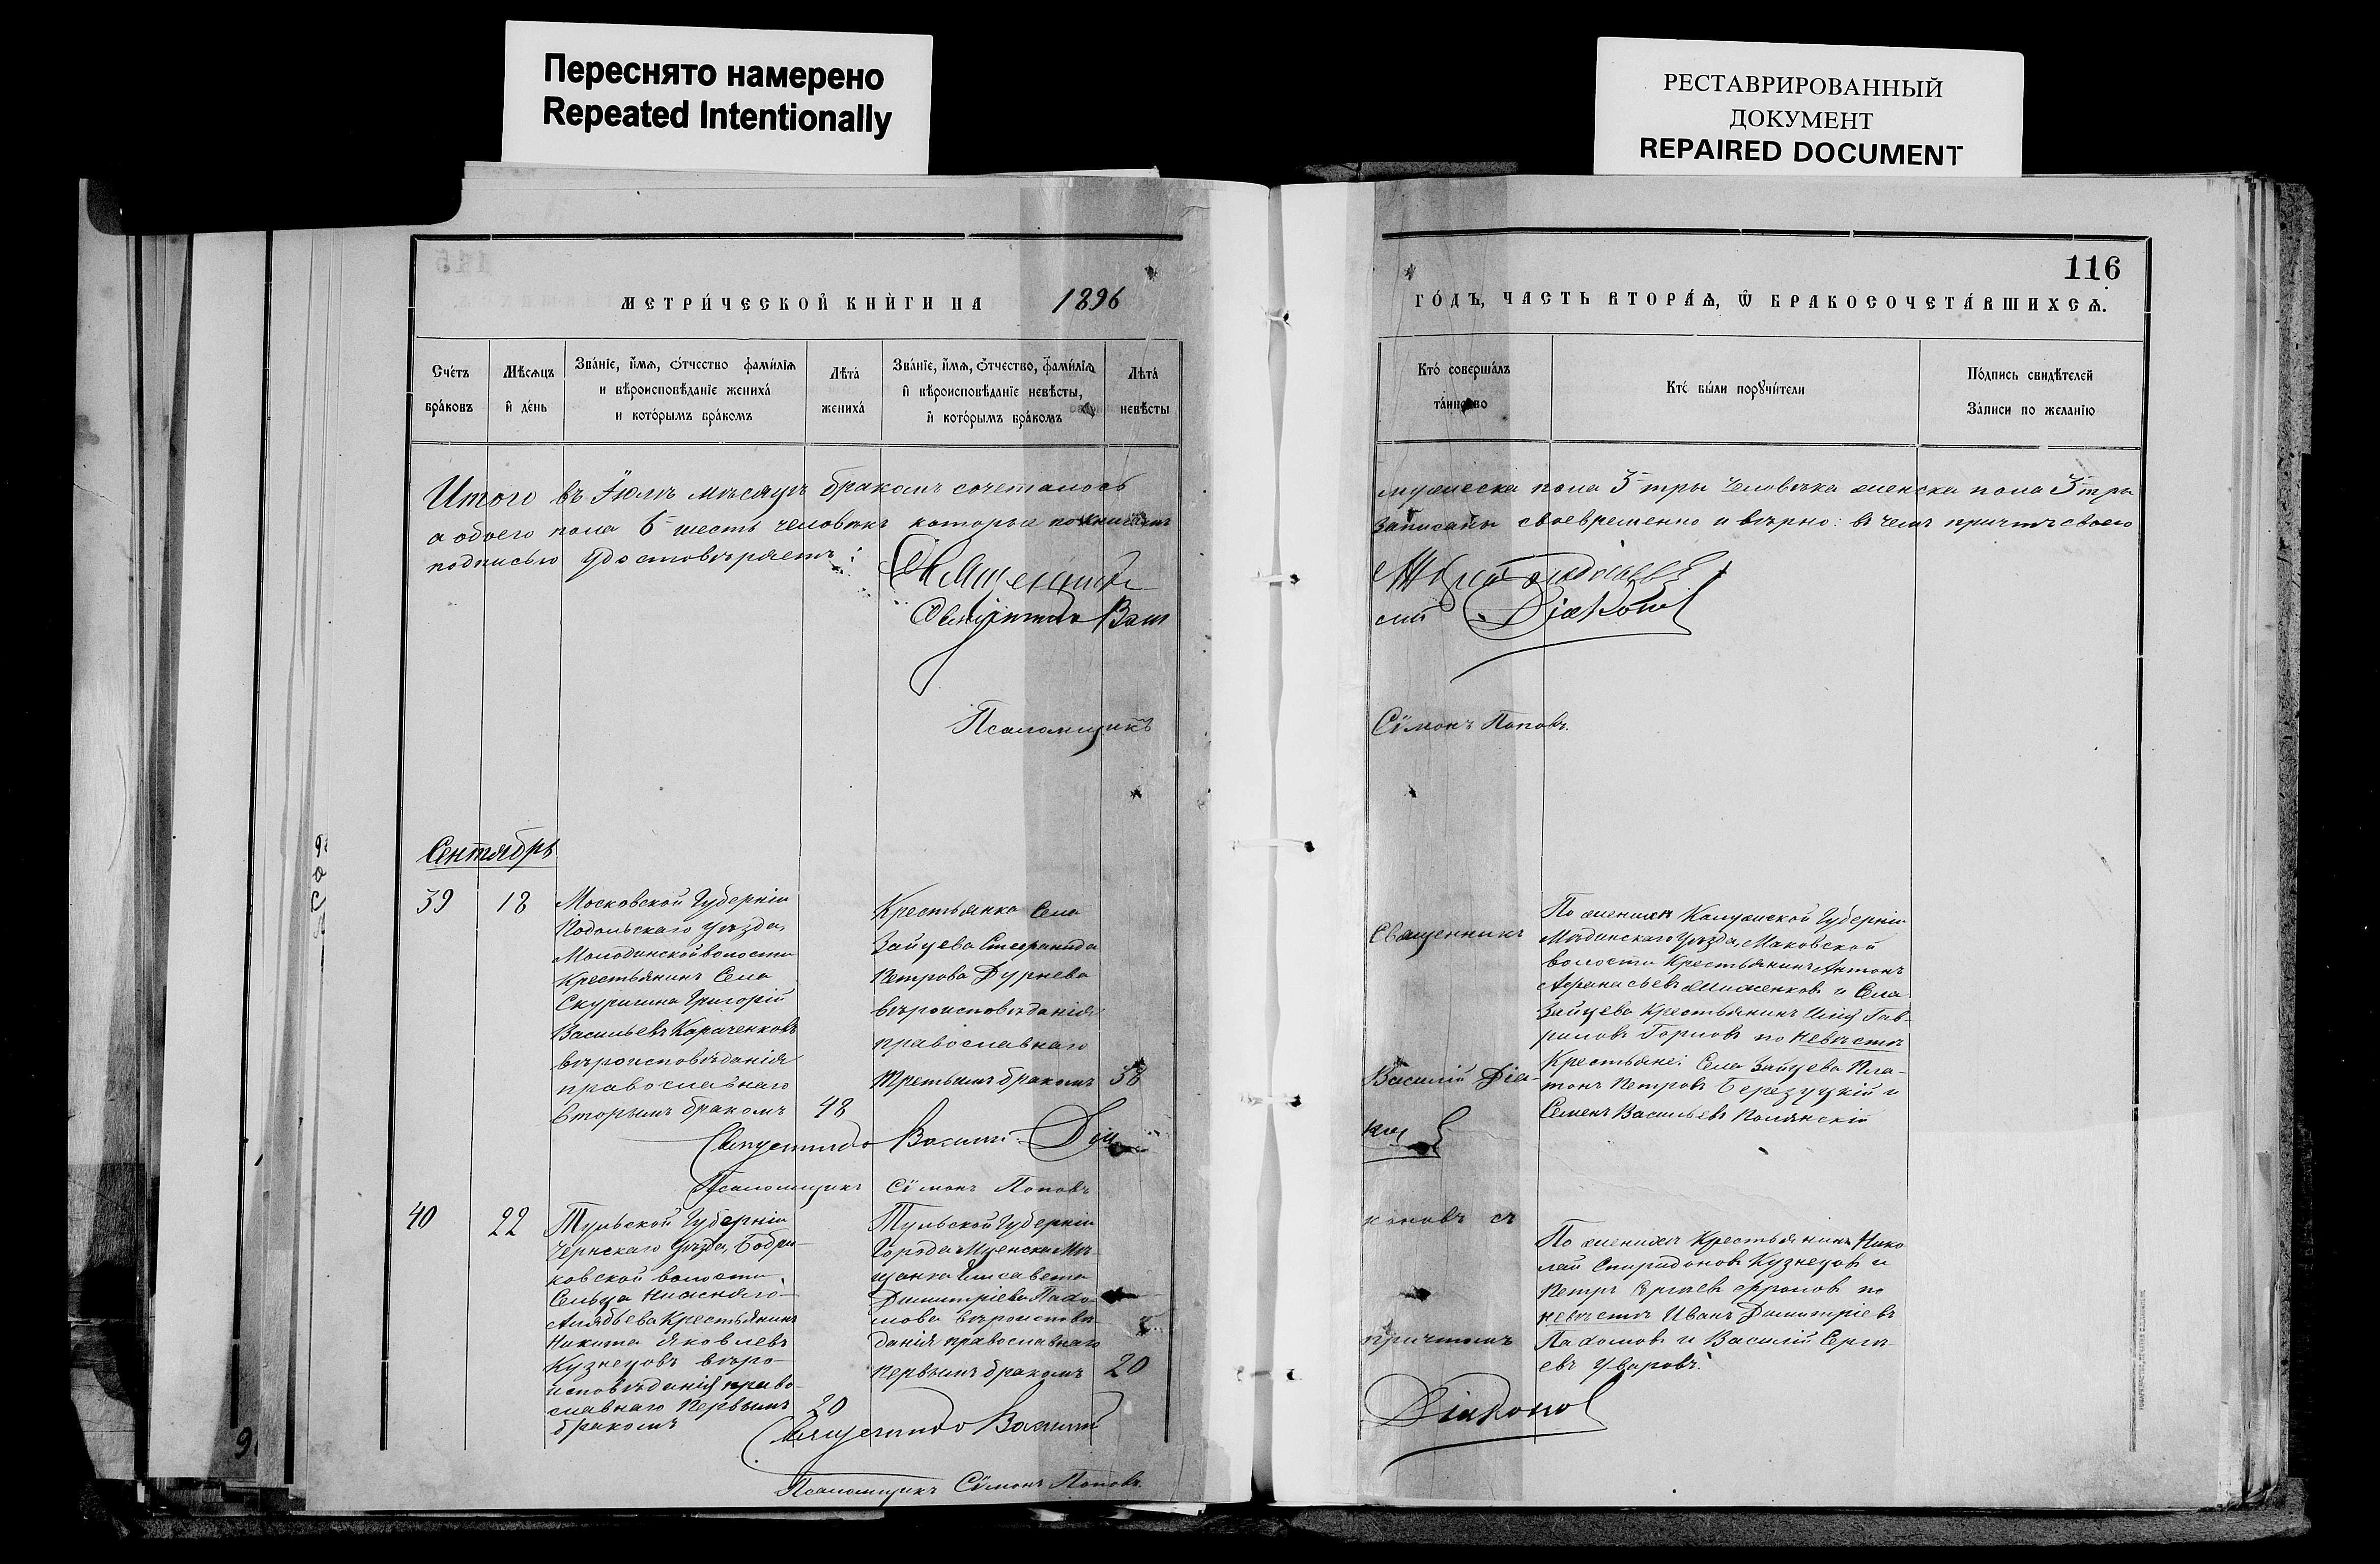 Переснято намерено
Repeated Intentionally
РЕСТАВРИРОВАННЫЙ
ДОКУМЕНТ
REPAIRED DOCUMENT
116
МЕТРИ́ЧЕСКОЙ КНИ́ГИ НА 1896
ГО́ДЪ, ЧАСТЬ ВТОРА́Ѧ, Ѽ БРАКОСОЧЕТА́ВШИХСѦ.
Сче́тъ бра́ковъ
Мѣ́сѧцъ и҆ де́нь
Зва́нїе, и҆́мѧ, ѻ҆́тчество фами́лїѧ
и вѣроисповѣ́данїе жениха́
и кото́рымъ бра́комъ
Лѣта́ жениха́
Зва́нїе, и҆́мѧ, ѻ҆́тчество, фами́лїѧ
и҆ вѣроисповѣ́данїе невѣ́сты,
и҆ кото́рымъ бра́комъ
Лѣта́ невѣ́сты
Кто́ соверша́лъ
та́инство
Кто́ бы́ли порꙋчи́тели
По́дпись свидѣ́телей
За́писи по жела́нїю
Итого въ Іюлѣ мѣсяцѣ бракомъ сочеталось
мужеска пола 3 три человѣка женска пола 3 три
а обоего пола 6 шесть человѣкъ которые
записаны своевременно и вѣрно: въ чемъ причтъ своею
подписью удостовѣряетъ:
Священникъ Василій
Діаконов
Псаломщикъ Сімонъ Поповъ.
Сентябрь
39
18
Московской Губерніи
Подольскаго уѣзда,
Молодинской волости
Крестьянинъ Села
Скурыгина Григорій
Васильевъ Караченковъ
вѣроисповѣданія
православнаго
Вторымъ бракомъ
48
Крестьянка Села
Зайцева Стефанида
Петрова Дурнева
вѣроисповѣданія
православнаго
третьимъ бракомъ
38
Священникъ
Василій Діа-
По женихѣ Калужской Губерніи
Мѣдынскаго Уѣзда, Маковской
волости Крестьянинъ Антонъ
Афанасьевъ и Села
Зайцева Крестьянинъ Илія Гав-
риловъ Горловъ по невѣстѣ
Крестьяне: Села Зайцева Пла-
тонъ Петровъ Березуцкій и
Семенъ Васильевъ Полянскій
Священникъ Василій Діа
Псаломщикъ Сімонъ Поповъ
40
22
Тульской Губерніи
Чернскаго Уѣзда, Бобри-
ковской волости
Сельца Нижняго-
Алябьева Крестьянинъ
Никита Яковлевъ
Кузнецовъ вѣро-
исповѣданія право-
славнаго Первымъ
бракомъ
20
Тульской Губерніи
Города Мценска Мѣ-
щанка Елисавета
Димитріева Пахо-
мова вѣроисповѣ-
данія православнаго
первымъ бракомъ
20
коновъ съ
причтомъ
По женихѣ Крестьянинъ Нико
лай Спиридоновъ Кузнецовъ и
Петръ Фроловъ по
невѣстѣ Иванъ Димитріевъ
Пахомовъ и Василій Сергѣ-
евъ Уваровъ.
Священникъ Василій
Діаконов
Псаломщикъ Сімонъ Поповъ.